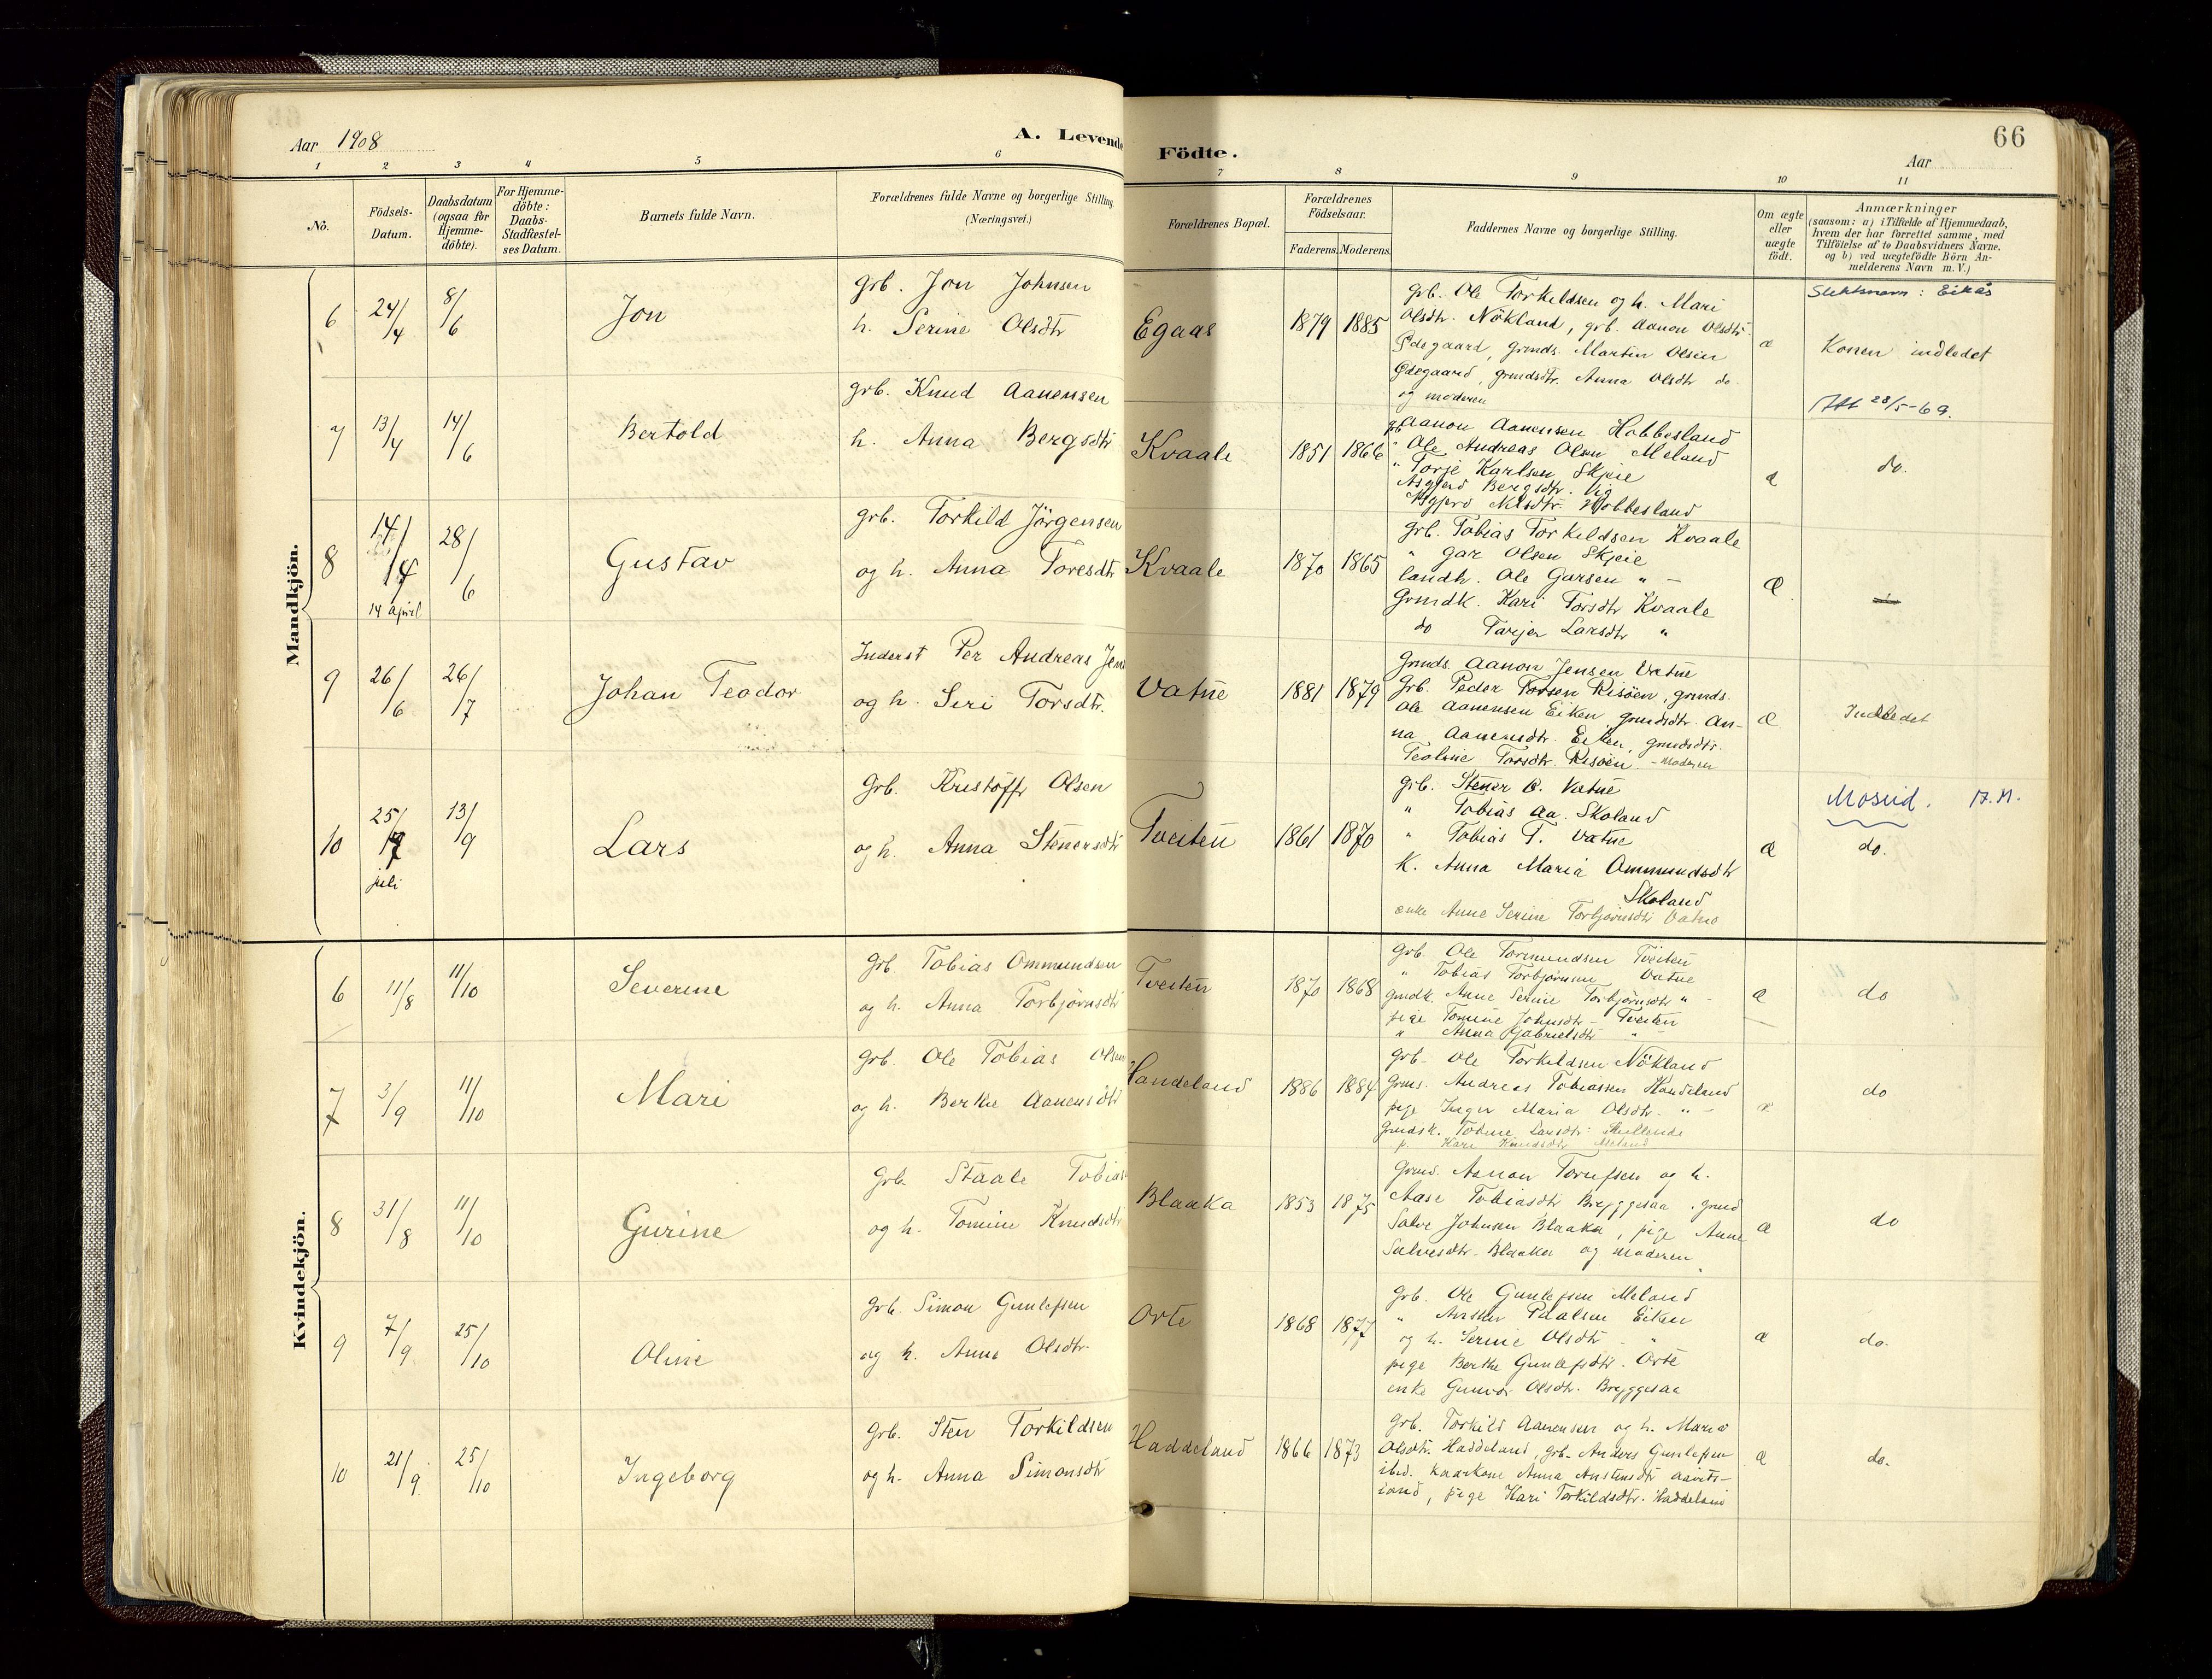 66
Aar 1908
A. Levende Födte.
Aar
1 2 3 4 5 6 7 8 9 10 11
No.
Födsels-Datum.
Daabsdatum (ogsaa for Hjemme-döbte).
For Hjemme-döbte: Daabs-Stadfæstel-ses Datum.
Barnets fulde Navn.
Forældrenes fulde Navne og borgerlige Stilling (Næringsvei.)
Forældrenes Bopæl.
Forældrenes Födselsaar.
Faderens. Moderens.
Faddernes Navne og borgerlige Stilling.
Om ægte eller uægte födt.
Anmærkninger
(saasom: a) i Tilfælde af Hjemmedaab,
hvem der har forrettet samme, med
Tilföielse af to Daabsvidners Navne,
og b) ved uægtefödte Börn An-
melderens Navn m. V.)
Mandkjön.
6 24/4 8/6 Jon
grb. Jon Johnsen
h. Serine Olsdtr
Egaas 1879 1885
grb. Ole Torkildsen og h. Mari
Olsdtr. Nökland, grb. Aanon Olsdtr
Ødegaard, grmds. Martin Olsen
Ødegaard, grmdsdtr. Anna Olsdtr do.
og moderen
æ
Slektsnavn: Eikås
Konen indledet
28/5-69.
7 13/4 14/6 Bertold
grb. Knud Aanensen
h. Anna Bergsdtr
Kvaale 1851 1866
grb Aanon Aanensen Hobbesland
" Ole Andreas Olsen Meland
" Torje Karlsen Skjeie
Asgjerd Bergsdtr. Vig
Asgjerd Nilsdtr. Hobbesland
æ
do.
8 14/4 14 april 28/6 Gustav
grb. Torkild Jörgensen
og h. Anna Toresdtr
Kvaale 1870 1865
grb. Tobias Torkildsen Kvaale
" Gar Olsen Skjeie
landh. Ole Garsen " —
Grmdk. Kari Torsdtr Kvaale
do Tarjer Larsdtr "
Æ
9 26/6 26/7 Johan Teodor
Inderst Per Andreas Jens
og h. Siri Torsdtr.
Vatne 1881 1879
Grmds. Aanon Jensen Vatne
Grb. Peder Torsen Risöen, grmds.
Ole Aanensen Eiken grmdsdtr. An-
na Aanensdtr. Eiken, grmdsdtr.
Teoline Torsdtr. Risöen. - Moderen
Æ
Indledet
10 25/7 juli 13/9 Lars
Grb. Kristoffr Olsen
og h. Anna Stenersdtr
Tveiten 1861 1870
grb. Stener O. Vatne
" Tobias Aa. Skoland
" Tobias T. Vatne
K. Anna Maria Ommundsdtr
Skoland
enke Anne Serine Torbjörnsdtr Vatne
æ
Mosvid. A.M.
do.
Kvindekjön.
6 11/8 11/10 Severine
grb. Tobias Ommundsen
og h. Anna Torbjörnsdtr
Tveiten 1870 1868
grb. Ole Tormundsen Tveiten
" Tobias Torbjörnsen Vatne
grmdk. Anne Serine Torbjörnsdtr " -
pige Tomine Johnsdtr - Tveiten
" Anna Gabrielsdtr "
æ
do
7 3/9 11/10 Mari
grb. Ole Tobias Olsen
og h. Berthe Aanensdtr
Handeland 1886 1884
grb. Ole Torkildsen Nökland
Grmds. Andreas Tobiassen Handeland
pige Inger Maria Olsdtr. " -
Grmdsk. Tobine Larsdtr: Skullende
p. Kari Knudsdtr Meland
æ
do
8 31/8 11/10 Gurine
Grb. Staale Tobias
og h. Tomine Knudsdtr
Blaaka 1853 1875
Grmd. Aanon Torufsen og h.
Aase Tobiasdtr Bryggesaa. grmd
Salve Johnsen Blaaka, pige Anne
Salvesdtr. Blaaka og moderen
æ
do
9 7/9 25/10 Oline
Grb. Simon Gunlefsen
og h. Anne Olsdtr.
Orte 1868 1877
Grb. Ole Gunlefsen Meland
" Ansten Paalsen Eiken
og h. Serine Olsdtr "
pige Berthe Gunlefsdtr. Orte
enke Gunvor Olsdtr. Bryggesaa
æ
do.
10 21/9. 25/10 Ingeborg
Grb. Sten Torkildsen
og h. Anna Simonsdtr
Haddeland 1866 1873
Grb. Torkild Aanensen og h. Maria
Olsdtr. Haddeland, grb. Anders Gunlefsen
ibid. kaarkone Anna Anstensdtr Aavits-
land, pige Kari Torkildsdtr. Haddeland
æ
do.